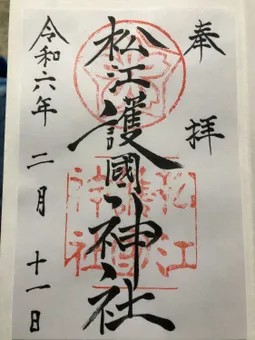 奉拝
松江護國神社
令和六年二月十一日
松江護國神社